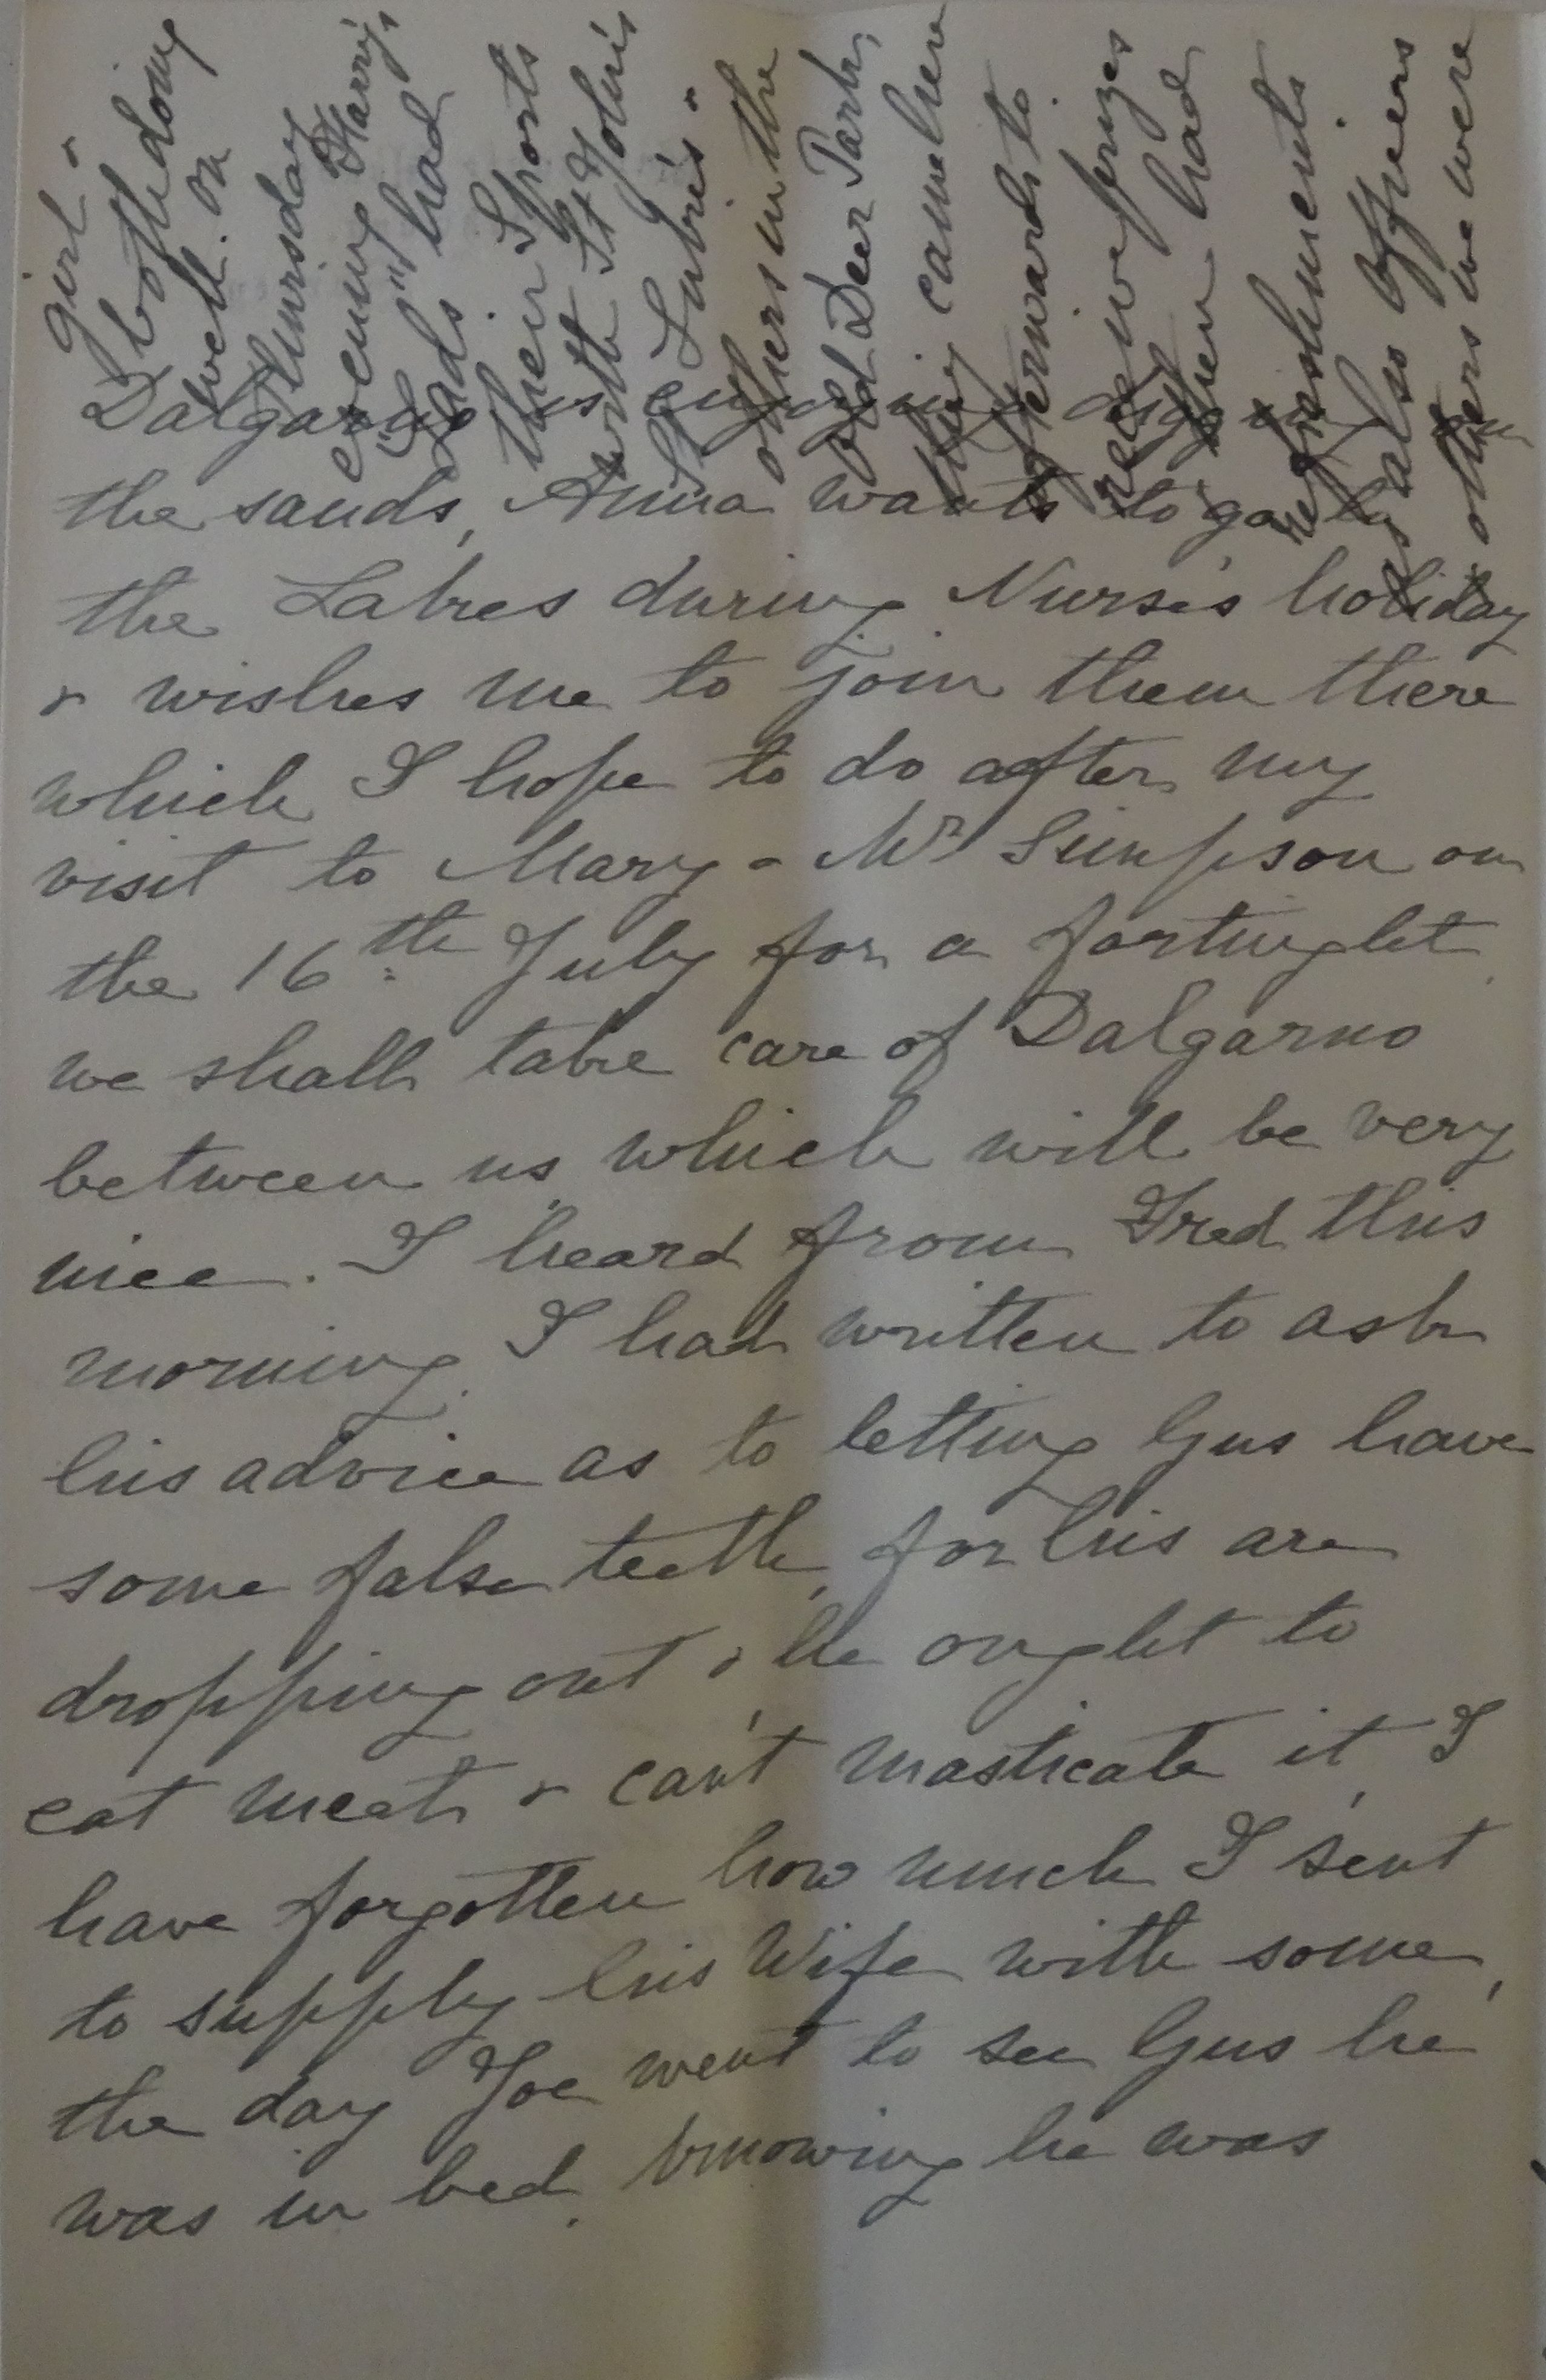 Dalgarno is enjoying digging on
the sands, Anna wants to go to
the Lakes during Nurse's holiday
& wishes me to join them there
which I hope to do after my
visit to Mary & Mr Simpson on
the 16th July for a fortnight
we shall take care of Dalgarno
between us, which will be very
nice. I heard from Fred this
morning. I had written to ask
his advice as to letting Gus have
some false teeth, for his are
dropping out & he ought to
eat meat & can't masticate it, I
have forgotten how much I sent
to supply his Wife with some,
the day Joe went to see Gus he
was in bed, knowing he was
girl &
both doing
well. on
Thursday
evening Harry's
"Lads" had
their Sports
with St John's
& St Luke's &
others in the
Old Deer Park,
they came here
afterwards to
receive prizes
then had
refreshments
also Officers
& others we were